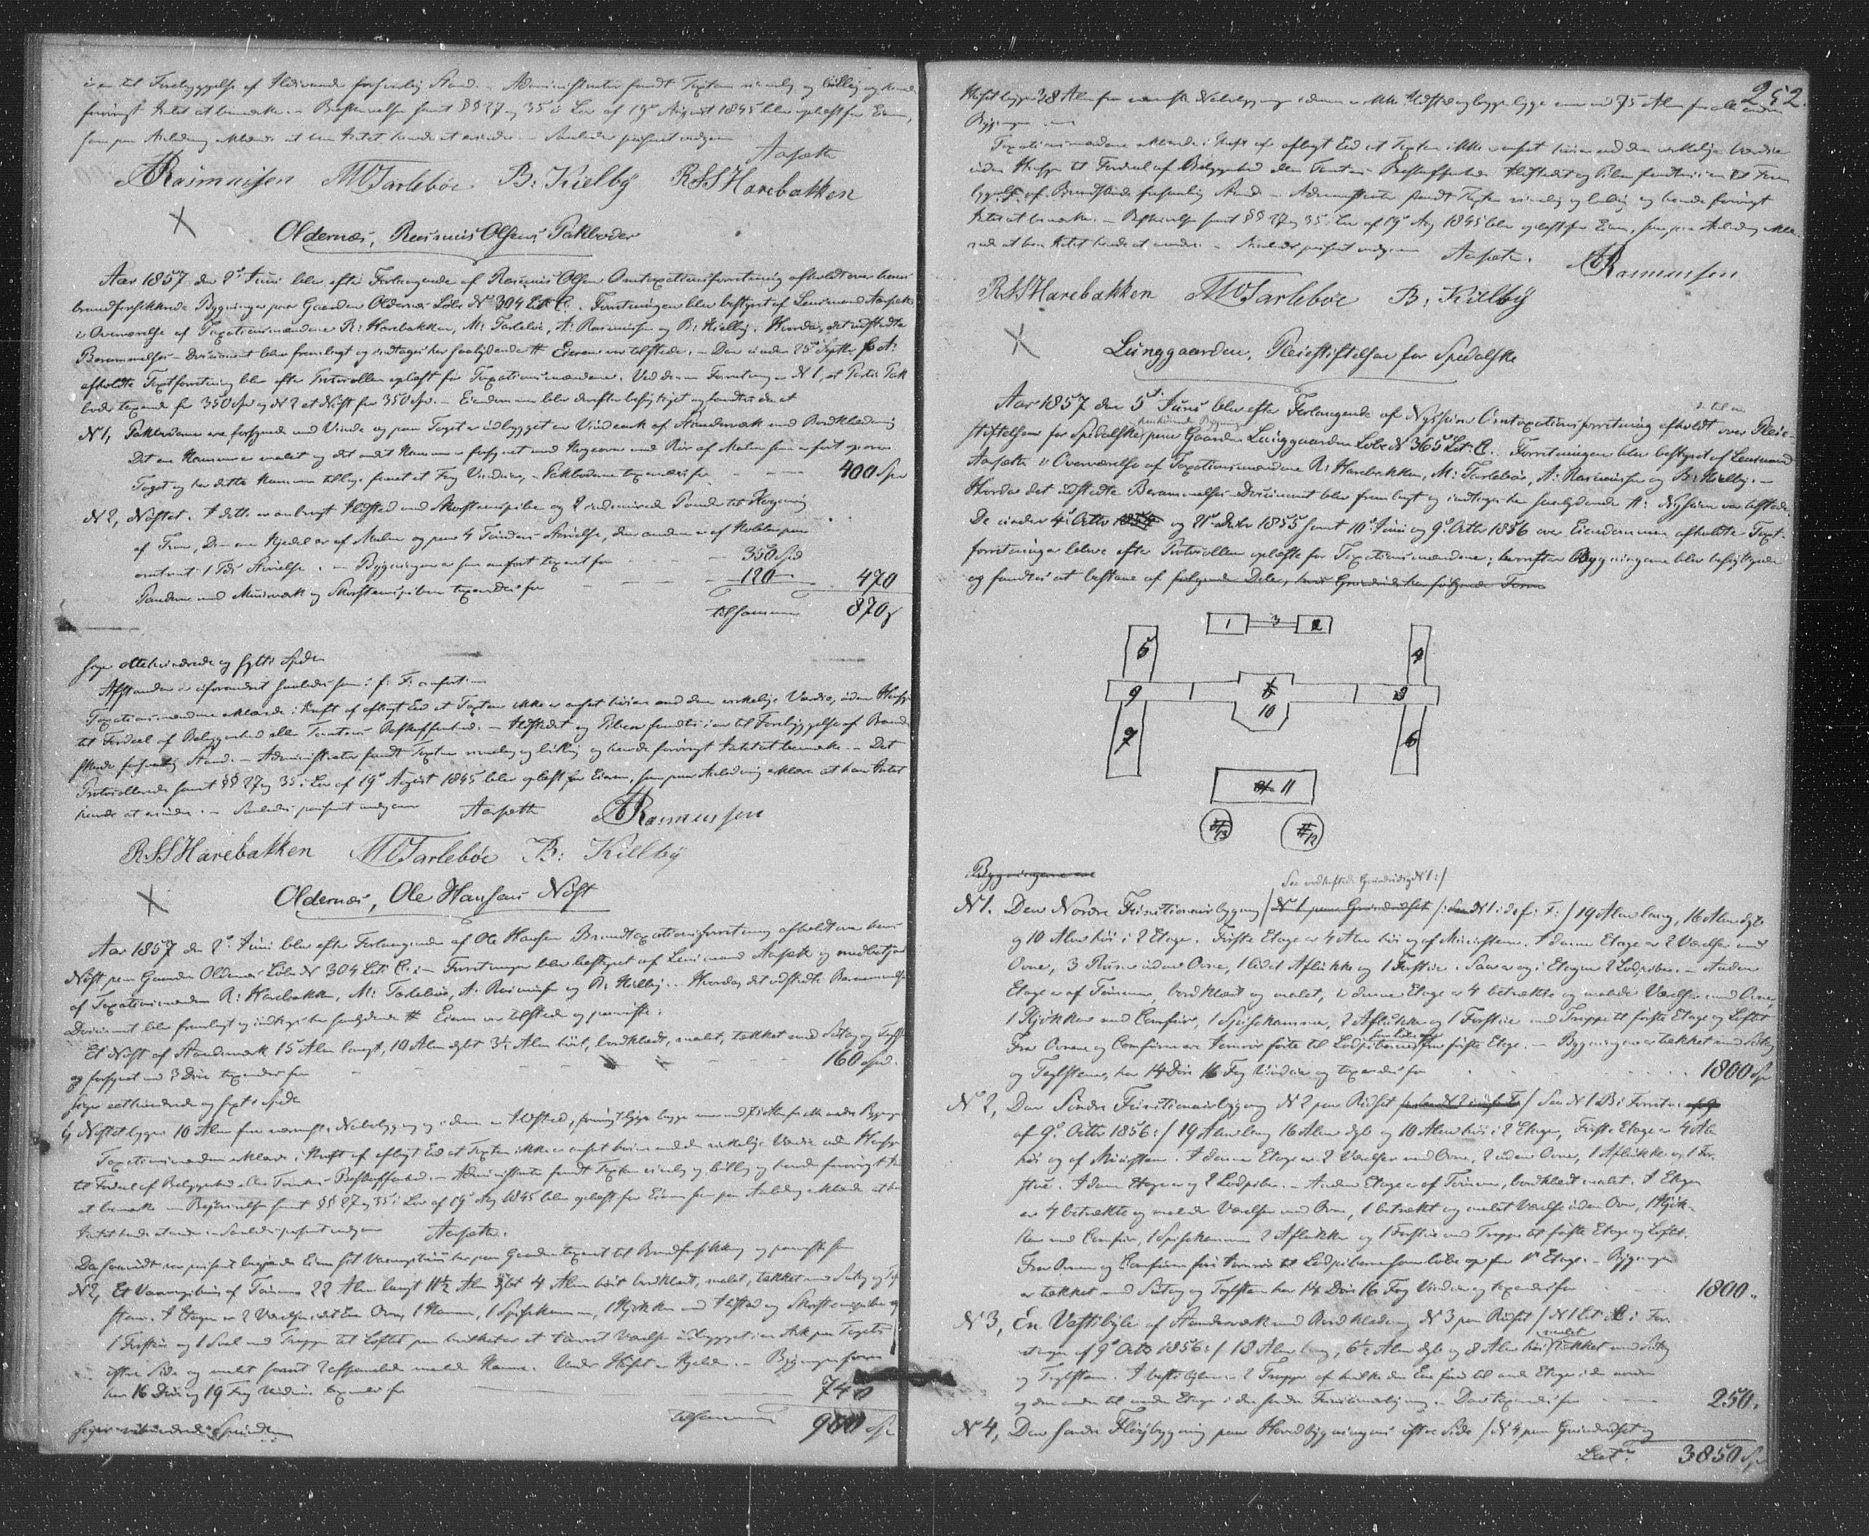 i en til Forebyggelse af Ildsvaade forsvarlig Stand. – Administrator fandt Taxten rimelig og billig og havde
forøvrigt Intet at bemærke. – Bestemmelserne samt §§ 27 og 35 i Lov af 19de August 1845 blev oplæst for Eieren,
som paa Anledning erklærede at han Intet havde at erindre. – Saaledes passeret medgaar
Aarsæth
A Rasmussen M O Tarlebøe B: Kielby R S S Harebakken
Oldernæs, Rasmus Olsens Pakboder
Aar 1857 den 2d Juni blev efter Forlangende af Rasmus Olsen Omtaxationsforretning afholdt over hans
brandforsikkrede Bygninger paa Gaarden Oldernæs Løbe N 304 Lit C. Forretningen blev bestyret af Lensmand Aarsæth
i Overværelse af Taxationsmændene R: Harebakken, M: Tarlebøe, A: Rasmussen og B: Kielby. Hvorda, det udstedte
Berammelses-Document blev fremlagt og indtages her saalydende # Eieren var tilstede. – Den under 25de Septbr f: A:
afholdte Taxtforretning blev efter Protocollen oplæst for Taxationsmændene. Ved denne Forretning er N 1, et Parti Pak
boder taxeret for 350 Spd og N 2 et Nøst for 350 Spd. – Eiendommen blev derefter besigtiget og fandtes at
N 1, Pakboderne ere forsynede med Vinde og paa Taget er udbygget en Vindeark af Bindværk med Bordklædning
Det ene Kammer er malet og det andet Kammer er forsynet med Kogeovn med Rør af Malm som er ført op over
Taget og har dette Kammer tillige faaet et Fag Vinduer. – Pakboderne taxeredes for 400 Spd
N 2, Nøstet. I dette er anbragt Ildsted med Skorsteenspibe og 2 indmurede Pander til Kogning
af Tran, Den ene Kjedel er af Malm og paa 4 Tønders Størrelse, den anden er af Kobber paa
omtrent 1 Tdr Størrelse. – Bygningen er som anført taxeret for 350 Spd
Panderne med Muurværk og Skorsteenspiben taxeredes for 120 – 470
tilsammen 870 S
siger ottehundrede og sytti Spdlr
Afstanden er uforandret saaledes som i f: F: anført. –
Taxationsmændene erklærede i Kraft af aflagt Eed at Taxten ikke er ansat høiere end den virkelige Værdie, uden Hensyn
til Fordeel af Beliggenhed eller Tomtens Beskaffenhed. – Ildstedet og Piben fandtes i en til Forebyggelse af Brand
skade forsvarlig Stand. – Administrator fandt Taxten rimelig og billig og havde forøvrigt Intet at bemærke. – Det
Protocollerede samt §§ 27 og 35 i Lov af 19de August 1845 blev oplæst for Eieren, som paa Anledning erklærede at han Intet
havde at erindre. – Saaledes passeret medgaar Aarsæth A Rasmussen
R S S Harebakken M O Tarlebøe B: Kielby
Oldernæs, Ole Hansens Nøst
Aar 1857 den 2d Juni blev efter Forlangende af Ole Hansen Brandtaxationsforretning afholdt over hans
Nøst paa Gaarden Oldernæs Løbe N 304 Lit: C. – Forretningen blev bestyret af Lensmand Aarsæth og medbetjent
af Taxationsmændene R: Harebakken, M: Tarlebøe, A. Rasmussen og B: Kielby. – Hvorda, det udstedte Berammelses
Document blev fremlagt og indtages her saalydende # Eieren var tilstede og paaviste:
Et Nøst af Bindværk 15 Alen langt, 10 Alen dybt 3½ Alen høit, bordklædt, malet, tækket med Sutag og Taglsteen
og forsynet med 3 Døre taxeredes for 160 Spd.
siger eethundrede og sexti Spdlr
Nøstet ligger 10 Alen fra nærmeste Nabobygning og i denne er Ildsted
Taxationsmændene erklærede i Kraft af aflagt Eed at Taxten ikke er ansat høiere end den virkelige Værdie uden Hensyn
til Fordeel af Beliggenhed eller Tomtens Beskaffenhed. – Administrator fandt Taxten rimelig og billig og havde forøvrigt Intet
at bemærke – Bestemmelserne samt §§ 27 og 35 i Lov af 19de Aug 1845 blev oplæst for Eieren som paa Anledning erklærede at han
Intet havde at erindre. – Saaledes passeret medgaar Aarsæth.
N 2, Et Vaaningshuus af Tømmer 22 Alen langt 11½ Alen dybt 4 Alen høit bordklædt, malet, tækket med Sutag og Tagl
steen. I Etagen er 2 Værelser, det Ene Ovn, 1 Kammer, 1 Spisekammer, 1 Kjøkken med Ildsted og Skorsteenspibe og
1 Forstue og 1 Sval med Trappe til Loftet paa hvilket er et tømret Værelse udbygget i en Ark paa Tagets
østre Side og malet samt 2 afpanelede malede Kamre. Under Huset er Kjelder. – Bygningen som
har 16 Døre og 19 Fag Vinduer taxeredes for 740
tilsammen 900 Spd
siger nihundrede Speciedaler
252.
Huset ligger 38 Alen fra nærmeste Nabobygning i denne er ikke Ildsted og ligger mere end 75 Alen fra alle andre
Bygninger. –
Taxationsmændene erklærede i Kraft af aflagt Eed at Taxten ikke er ansat høiere end den virkelige Værdie
uden Hensyn til Fordeel af Beliggenhed eller Tomtens Beskaffenhed. Ildstedet og Piben fandtes i en til Fore
byggelse af Brandskade forsvarlig Stand. – Administrator fandt Taxten rimelig og billig og havde forøvrigt
Intet at bemærke. – Bestemmelserne samt §§ 27 og 35 i Lov af 19de Aug 1845 blev oplæst for Eieren, som paa Anledning erklæ-
rede at han Intet havde at erindre. – Saaledes passeret medgaar Aarsæth. A Rasmussen
R S S Harebakken M O Tarlebøe B: Kielby
Lunggaarden, Pleiestiftelsen for Spedalske
Aar 1857 den 5te Juni blev efter Forlangende af Nyssen Omtaxationsforretning afholdt over de til en Pleie-
stiftelsen for Spedalske henhørende Bygninger paa Gaarden Lunggaarden Løbe N 365 Lit: C. Forretningen blev bestyret af Lensmand
Aarsæth i Overværelse af Taxationsmændene R: Harebakken, M: Tarlebøe, A: Rasmussen og B: Kielby. –
Hvorda det udstedte Berammelses-Document blev fremlagt og indtages her saalydende #: Nyssen var tilstede.
De under 4de Octbr 1854 og 21de Debr 1855 samt 10de Juni og 9de Octbr 1856 over Eiendommen afholdte Taxt-
forretninger bleve efter Protocollen oplæste for Taxationsmændene; hvorefter Bygningerne bleve besigtigede
og fandtes at bestaae af følgende Dele,
1 3 2
5 4
9 8
10
7 6
11
13 12
Bygningerne ere
See vedheftede Grundrids N 1:/
N 1. Den Nordre Functionairbygning / N 1 paa Grundridset /: see N 1 i de f: F:/ 19 Alen lang, 16 Alen dyb
og 10 Alen høi i 2 Etager. Første Etage er 4 Alen høi og af Muursteen. I denne Etage er 2 Værelser med
Ovne, 3 Rum uden Ovne, 1 lidet Aflukke og 1 Forstue. Saa er og i Etagen 2 Lodpiber. – Anden
Etage er af Tømmer, bordklædt og malet, i denne Etage er 4 betrækte og malede Værelser med Ovne,
1 Kjøkken med Comfuur, 1 Spisekammer, 2 Aflukker og 1 Forstue med Trappe til første Etage og Loftet
Fra Ovnene og Comfuren ere Jernrør førte til Lodpiberne fra første Etage. – Bygningen er tækket med Sutag
og Taglsteen, har 14 Døre 16 Fag Vinduer og taxeredes for 1800 Spd
N 2, Den Søndre Functionairbygning N 2 paa Ridset / See N 1 B i Forretn:
af 9de Octbr 1856:/ 19 Alen lang 16 Alen dyb og 10 Alen høi i 2 Etager, Første Etage er 4 Alen
høi og af Muursteen. I denne Etage er 2 Værelser med Ovne, 2 uden Ovne, 1 Aflukke og 1 For-
stue. I denne Etage er og 2 Lodpiber. – Anden Etage er af Tømmer, bordklædt malet. I Etagen
er 4 betrækte og malede Værelser med Ovne, 1 betrækt og malet Værelse uden Ovn, 1 Kjøk-
ken med Comfuur, 1 Spisekammer 2 Aflukker og 1 Forstue med Trappe til første Etage og Loftet.
Fra Ovnene og Comfuren føre Jernrør til Lodpiberne som løbe op fra 1ste Etage. – Bygningen
er tækket med Sutag og Taglsteen har 14 Døre 16 Fag Vinduer og taxeredes for 1800.
N 3, En Vestibyle af Bindværk med Bordklædning N 3 paa Ridset / N 1 Lit C i For-
retningen af 9de Octbr 1856:/ 18 Alen lang, 6½ Alen dyb og 8 Alen høi malet tækket med Sutag
og Taglsteen. I Vestibylen er 2 Trapper af hvilke den Ene fører til anden Etage i den nordre
og den anden til anden Etage i den søndre Functionairbygning. – Den taxeredes for 250.
N 4, Den søndre Fløibygning paa Hovedbygningens østre Side / N 4 paa Grundridset og
Lat: 3850 Spd